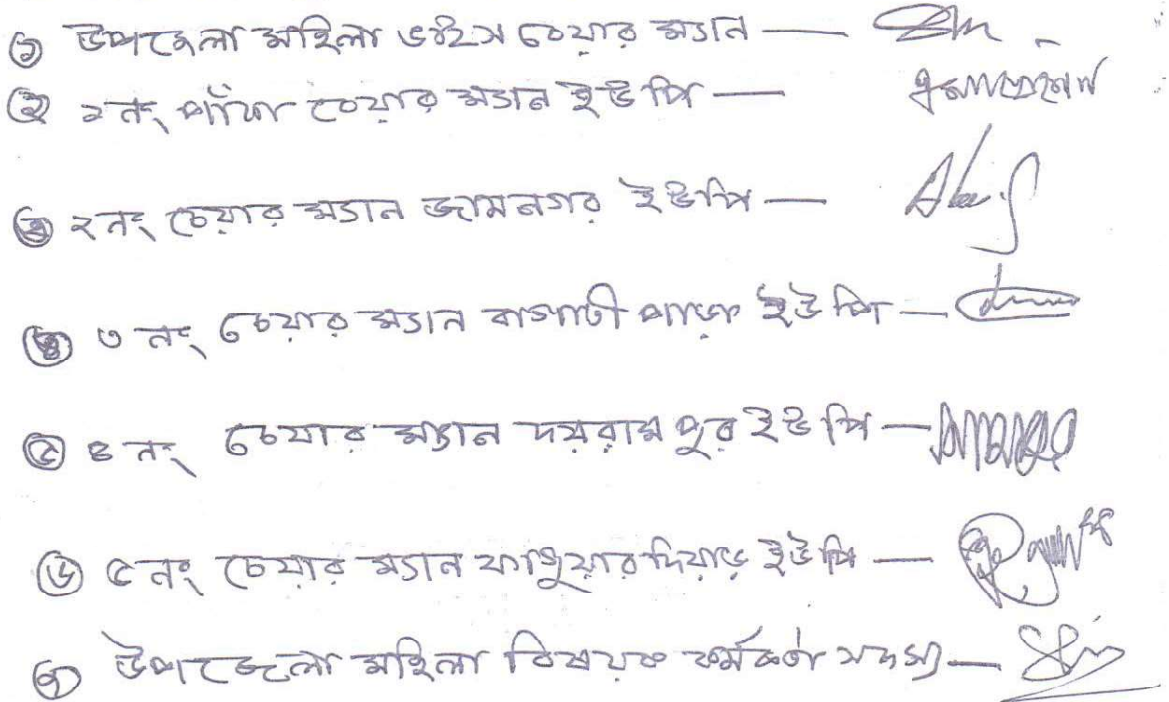 ① উপজেলা মহিলা ভাইস চেয়ার ম্যান —
② ১নং পাঁকা চেয়ার ম্যান ইউপি —
③ ২নং চেয়ার ম্যান জামনগর ইউপি —
④ ৩ নং চেয়ার ম্যান বাগাতী পাড়া ইউপি —
⑤ ৪ নং চেয়ার ম্যান দয়রামপুর ইউপি —
⑥ ৫নং চেয়ার ম্যান ফাগুয়ারদিয়াড় ইউপি —
⑦ উপজেলা মহিলা বিষয়ক কর্মকর্তা সদস্য —